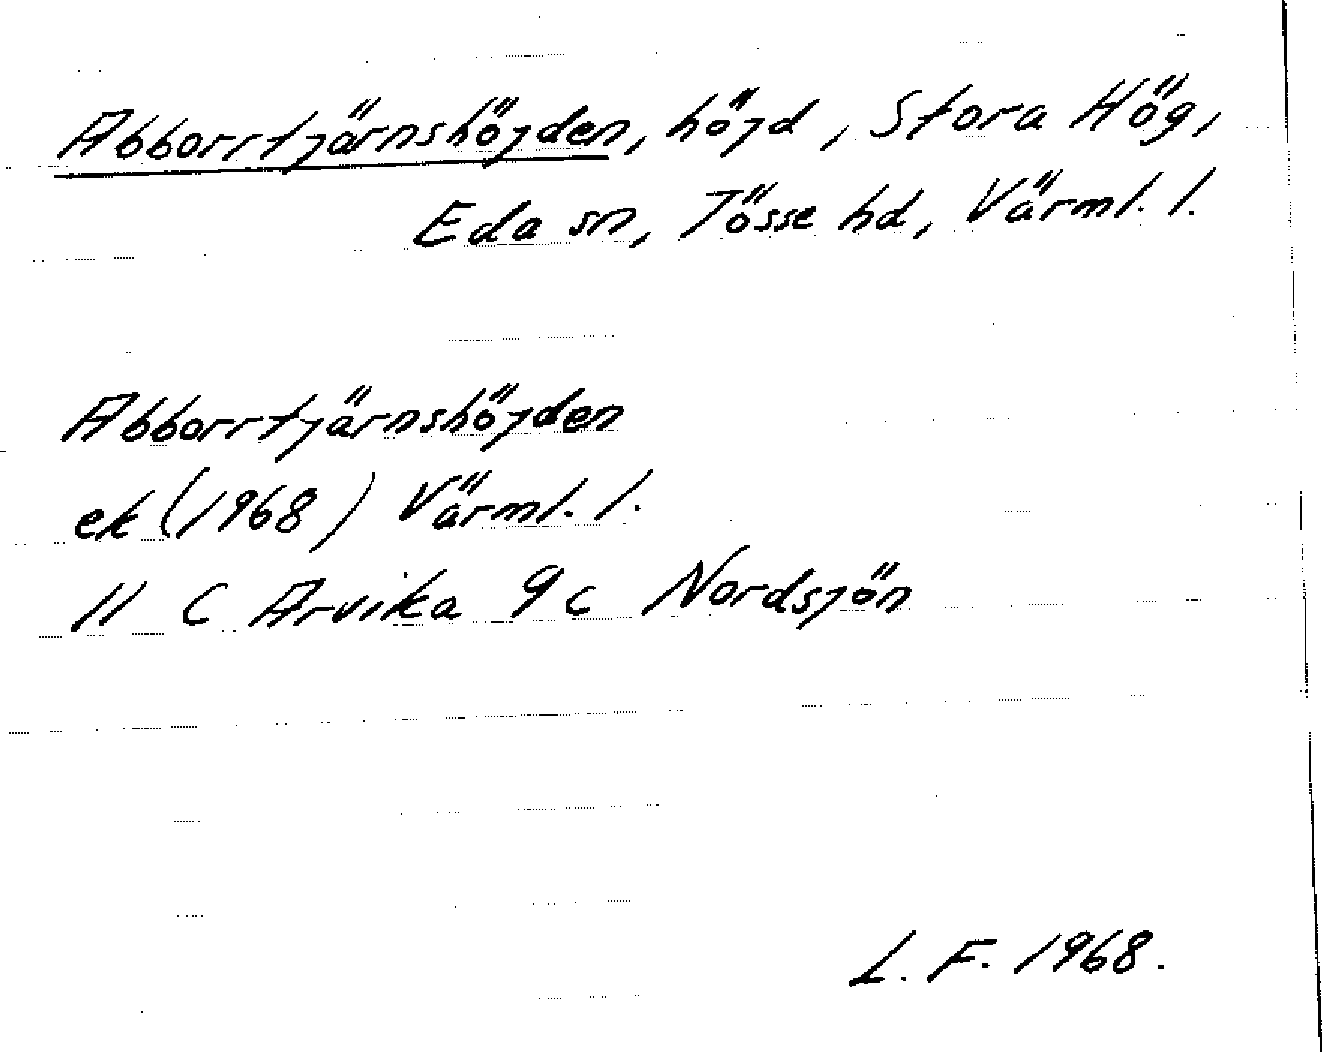 Abborrtjärnshöjden, höjd, Stora Hög,
Eda sn, Jösse hd, Värml. l.
Abborrtjärnshöjden
ek (1968) Värml. l.
11 C Arvika 9c Nordsjön
L. F. 1968.